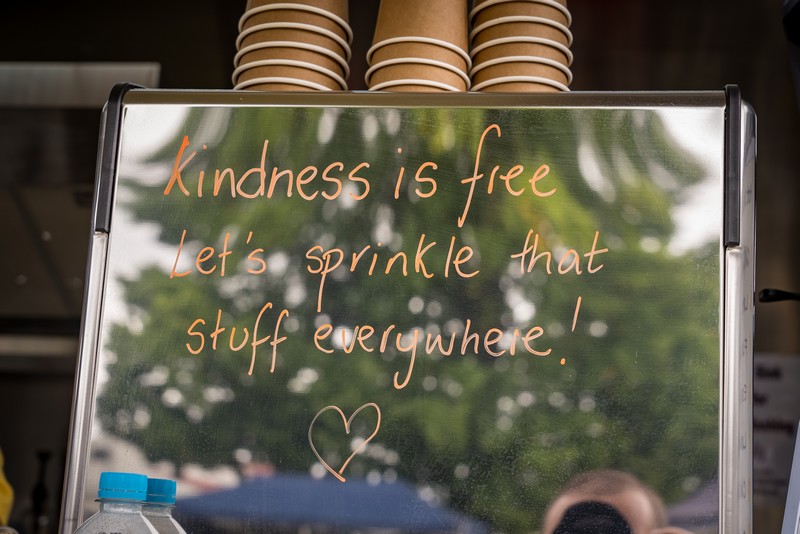 Kindness is free
Let's sprinkle that
stuff everywhere!